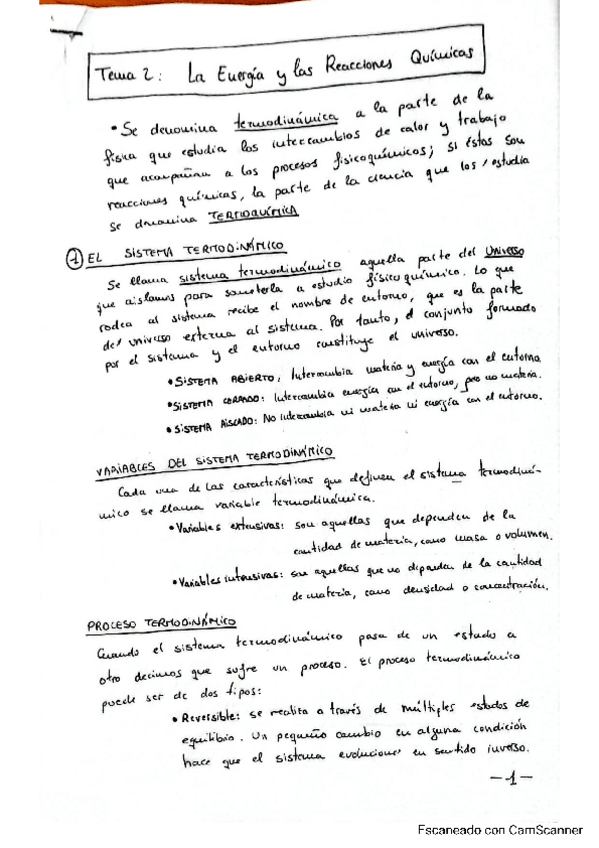 Tema 2: La Energía y las Reacciones Químicas
• Se denomina termodinámica a la parte de la
física que estudia los intercambios de calor y trabajo
que acompañan a los procesos fisicoquímicos; si éstos son
reacciones químicas, la parte de la ciencia que los estudia
se denomina TERMOQUÍMICA
1 EL SISTEMA TERMODINÁMICO
Se llama sistema termodinámico aquella parte del Universo
que aislamos para someterla a estudio físico químico. Lo que
rodea al sistema recibe el nombre de entorno, que es la parte
del universo externa al sistema. Por tanto, el conjunto formado
por el sistema y el entorno constituye el universo.
• SISTEMA ABIERTO: Intercambia materia y energía con el entorno
• SISTEMA CERRADO: Intercambia energía con el entorno, pero no materia.
• SISTEMA AISLADO: No intercambia ni materia ni energía con el entorno.
VARIABLES DEL SISTEMA TERMODINÁMICO
Cada una de las características que definen el sistema termodiná-
mico se llama variable termodinámica.
• Variables extensivas: son aquellas que dependen de la
cantidad de materia, como masa o volumen.
• Variables intensivas: son aquellas que no dependen de la cantidad
de materia, como densidad o concentración.
PROCESO TERMODINÁMICO
Cuando el sistema termodinámico pasa de un estado a
otro decimos que sufre un proceso. El proceso termodinámico
puede ser de dos tipos:
• Reversible: se realiza a través de múltiples estados de
equilibrio. Un pequeño cambio en alguna condición
hace que el sistema evolucione en sentido inverso.
-1-
Escaneado con CamScanner